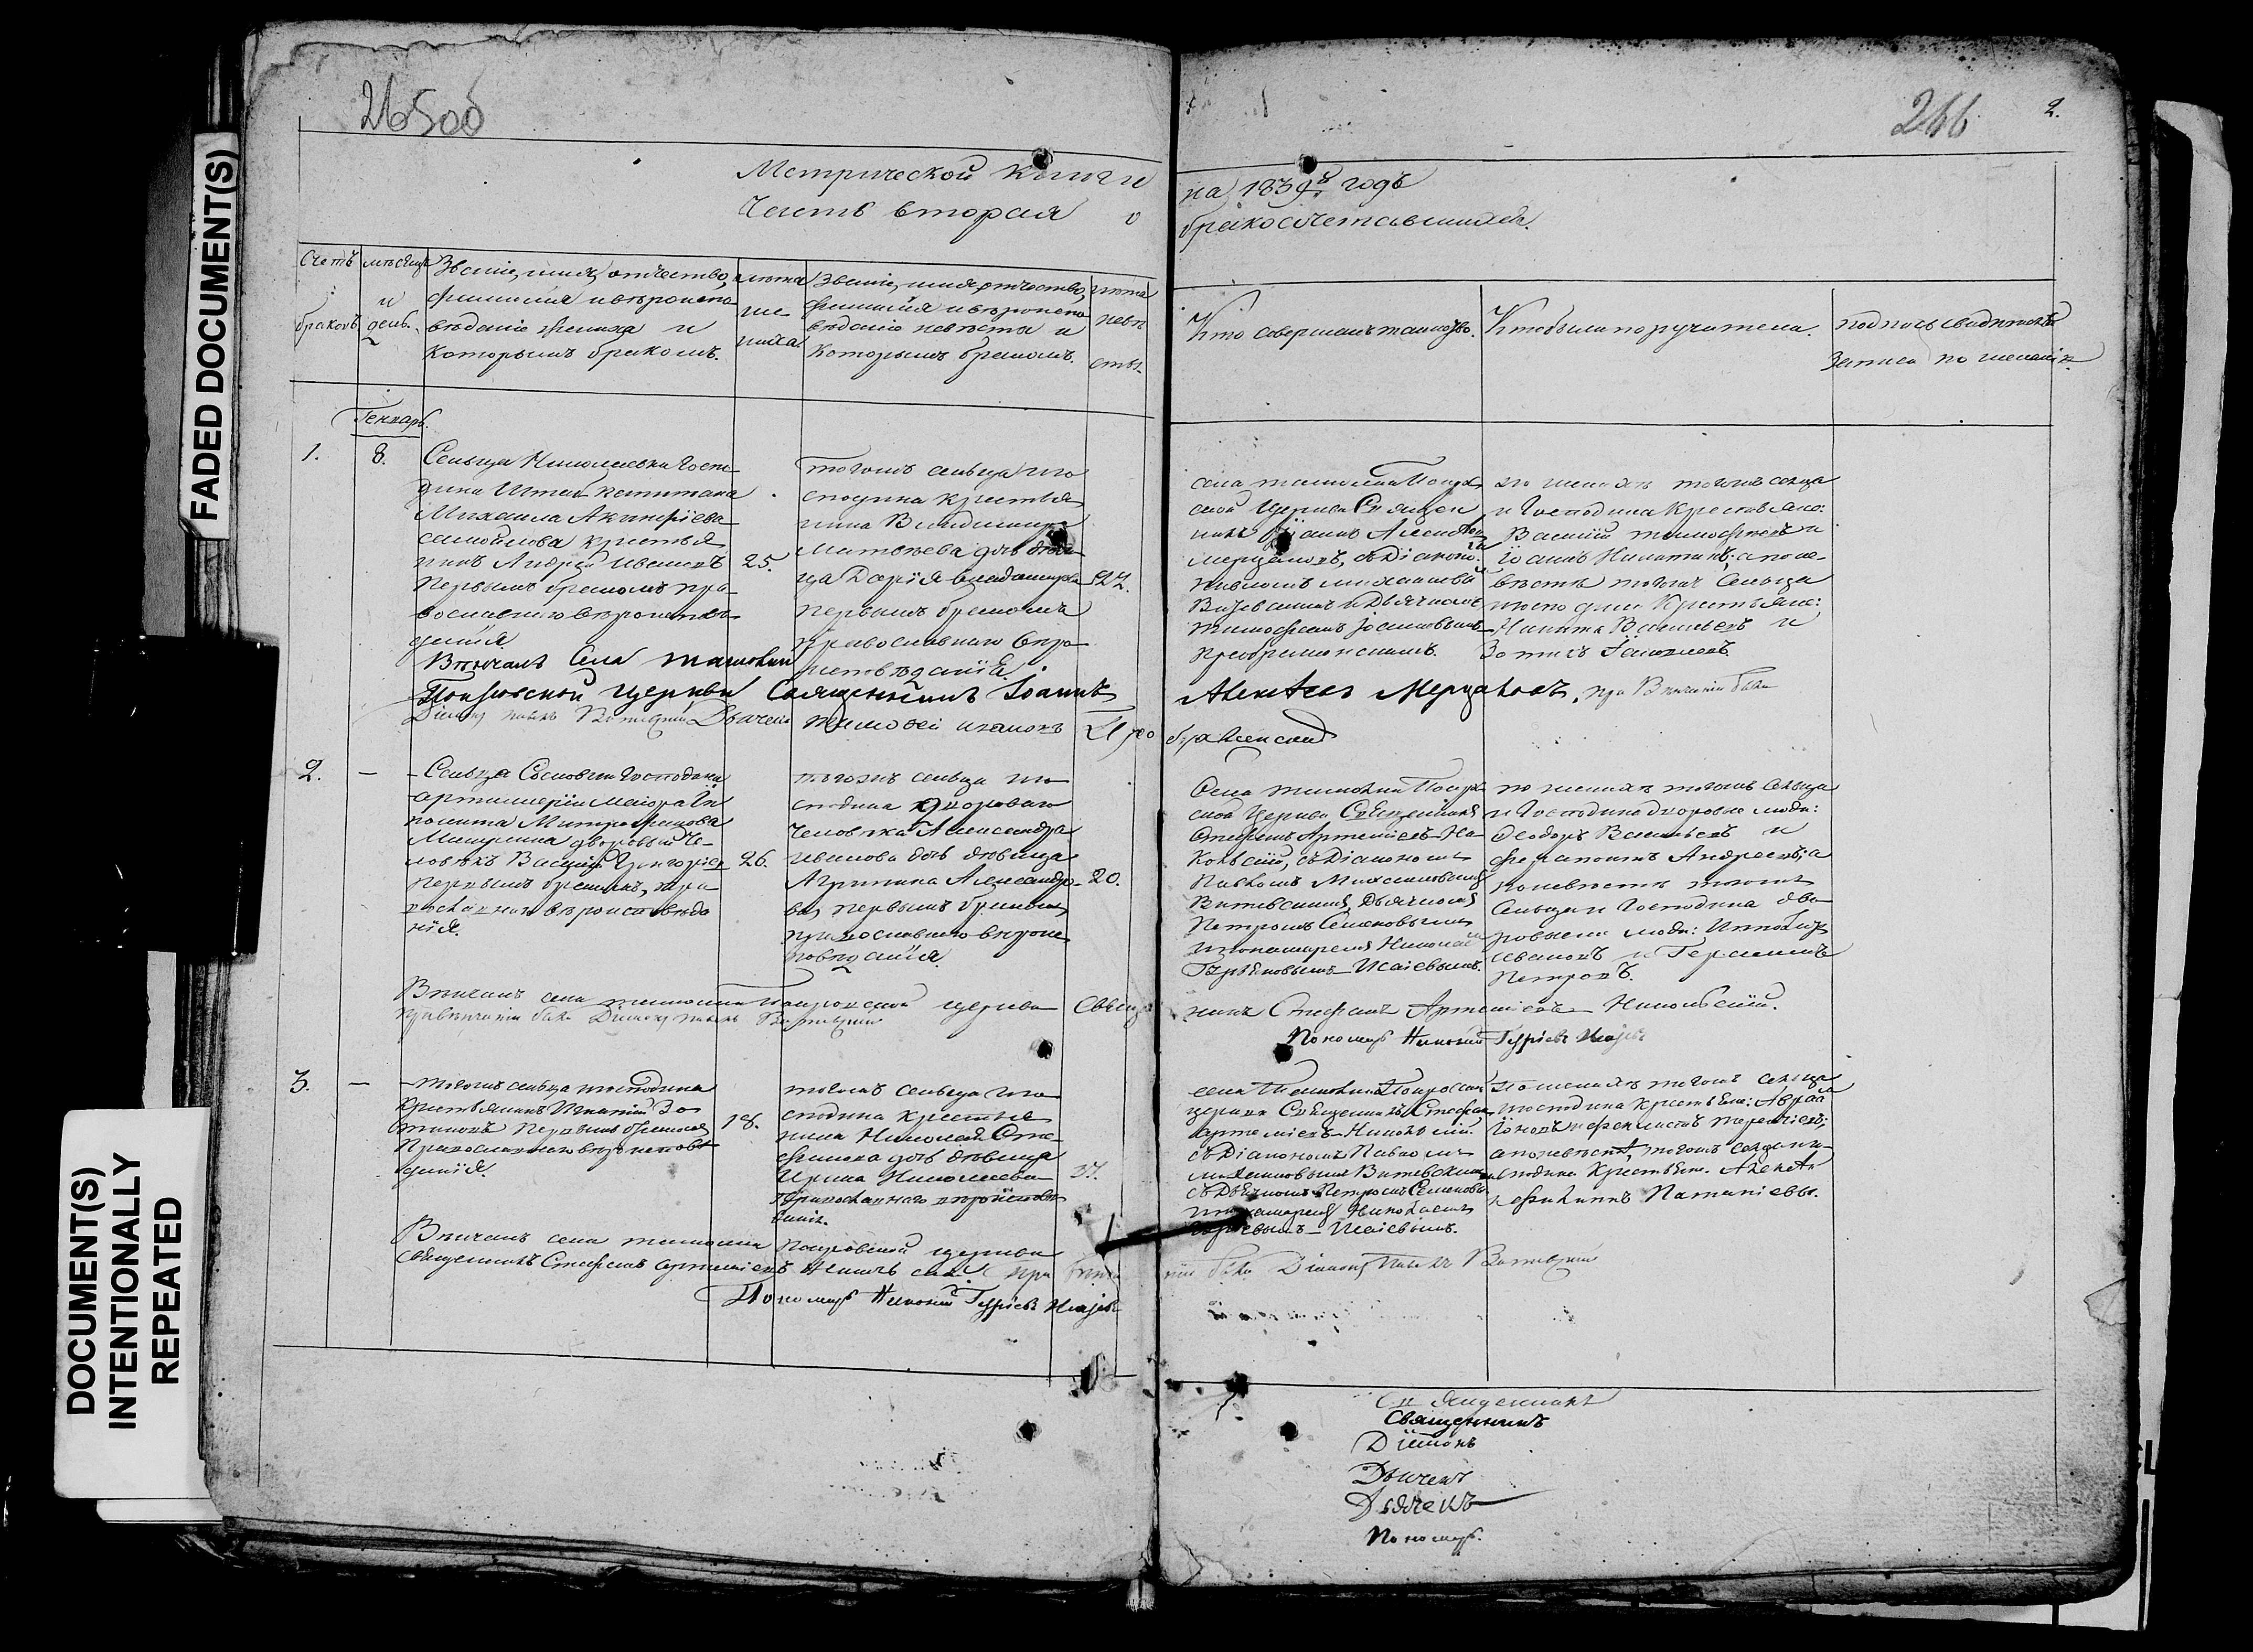 FADED DOCUMENT(S)
DOCUMENT(S)
INTENTIONALLY
REPEATED
265об
266
2.
Метрической книги
на 1839й годъ
Часть вторая о
бракосочетавшихся.
Счетъ
браковъ
мѣсяцъ
и
день.
Званіе, имя, отчество,
фамилія и вѣроиспо
вѣданіе жениха и
которымъ бракомъ.
лѣта
же
ниха
Званіе, имя, отчество,
фамилія и вѣроиспо
вѣданіе невѣсты и
которымъ бракомъ.
лѣта
невѣ
сты.
Кто совершалъ таинство.
Кто были поручители.
подпись свидѣтелей
записи по желанію.
Генварь.
1.
8.
Сельца Николаевки Госпо
дина Штабъ капитана
Михаила Акинфіева
Самойлова крестья
нинъ Андрей Ивановъ
первымъ бракомъ пра
вославнаго вѣроисповѣ
данія
25.
тогожъ сельца и го
сподина крестья
нина Владимира
Матвѣева дочь дѣви
ца Дарія Владимирова
первымъ бракомъ
православнаго вѣро
исповѣданія.
22.
села Покров
ской Церкви Священ
никъ Іоаннъ Алексѣевъ
Мерцаловъ, съ Діакономъ
Павломъ Михайловымъ
Витевскимъ и Дьячкомъ
Тимофеемъ Іоанновымъ
Преображенскимъ.
по женихѣ тогожъ сельца
и Господина Крестьяне:
Василій Тимофеевъ и
Іоаннъ Никитинъ; а по не
вѣстѣ тогожъ Сельца
и господина Крестьяне:
Никита Васильевъ и
Зотикъ Яковлевъ.
Вѣнчалъ Села
Покровской церкви Священникъ Іоаннъ
Алексѣевъ Мерцаловъ. при Вѣнчаніи былъ
Діаконъ Павелъ Витевскій Дьячекъ Тимофей Ивановъ Прео
браженскій
2.
–
Сельца Сосновки Господина
артиллеріи Маіора Ип
полита Митрофанова
дворовый че
ловѣкъ Василій Григорьев
первымъ бракомъ, пра
вославнаго вѣроисповѣда
нія.
26.
тогожъ сельца и го
сподина двороваго
человѣка Александра
Иванова дочь дѣвица
Агрипина Александро
ва первымъ бракомъ
православнаго вѣроис
повѣданія.
20.
Села Покров
ской Церкви Священникъ
Стефанъ Артеміевъ Ни
кольскій, съ Діакономъ
Павломъ Михайловымъ
Витевскимъ, Дьячкомъ
Петромъ Семеновымъ
и пономаремъ Николаемъ
Гурьевымъ Исаевымъ.
по женихѣ тогожъ Сельца
и Господина дворовые люди:
Ѳеодоръ Васильевъ и
Ферапонтъ Андреевъ; а
по невѣстѣ тогожъ
Сельца и Господина дво
ровыеже люди:
Ивановъ и Герасимъ
Петровъ.
Вѣнчалъ села Покровской церкви Священ
никъ Стефанъ Артеміевъ Никольскій.
при вѣнчаніи былъ Діаконъ Павелъ Витевскій
Пономарь Николай Гурьевъ Исаевъ
3.
–
тогожъ сельца и господина
Крестьянинъ Игнатій Зо
тиковъ Первымъ бракомъ
Православнаго вѣроисповѣ
данія.
18.
тогожъ Сельца и го
сподина крестья
нина Николая Сте
фанова дочь дѣвица
Ирина Николаева
православнаго вѣроисповѣ
данія.
17.
села Покровской
церкви Священникъ Стефанъ
Артеміевъ Никольскій
съ Діакономъ Павломъ
Михайловымъ Витевскимъ
съ Дьячкомъ Петромъ Семеновымъ
и пономаремъ Николаемъ
Гурьевымъ Исаевымъ.
По женихѣ тогожъ сельца
и господина крестьяне:
а по невѣстѣ, тогожъ сельца и го
сподина Крестьяне. Алексѣй
и Филиппъ Патапіевы.
Вѣнчалъ села Покровской церкви
Священникъ Стефанъ Артеміевъ Никольскій при вѣнча
ніи былъ Діаконъ Павелъ Витевскій
Пономарь Николай Гурьевъ Исаевъ
Священникъ
Священникъ
Діаконъ
Дьячекъ
Дьячекъ
Пономарь.